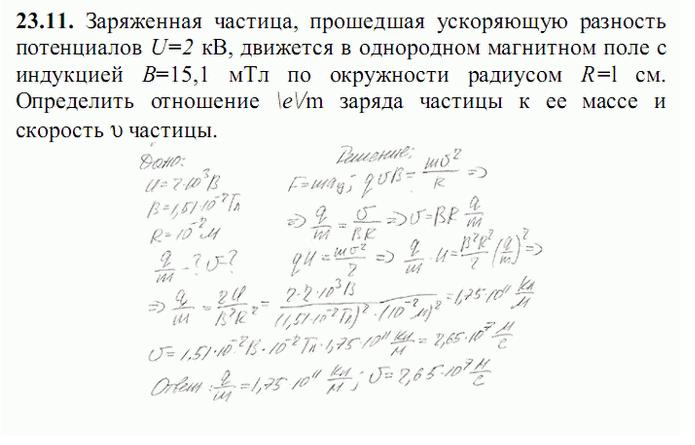 23.11. Заряженная частица, прошедшая ускоряющую разность
потенциалов U=2 кВ, движется в однородном магнитном поле с
индукцией B=15,1 мТл по окружности радиусом R=1 см.
Определить отношение |e|/m заряда частицы к ее массе и
скорость υ частицы.
Дано:
Решение:
U=2·10³В
F=maц; qυB = mυ²/R =>
B=1,51·10⁻²Тл
R=10⁻²м
=> q/m = υ/BR => υ=BR q/m
q/m -? υ-?
qU = mυ²/2 => q/m · U = B²R²/2 (q/m)² =>
=> q/m = 2U/B²R² = 2·2·10³В/(1,51·10⁻²Тл)²·(10⁻²м)² = 1,75·10¹¹ Кл/м
υ= 1,51·10⁻²В·10⁻²Тл·1,75·10¹¹ Кл/м = 2,65·10⁷ м/с
Ответ: q/m = 1,75·10¹¹ Кл/м; υ=2,65·10⁷ м/с